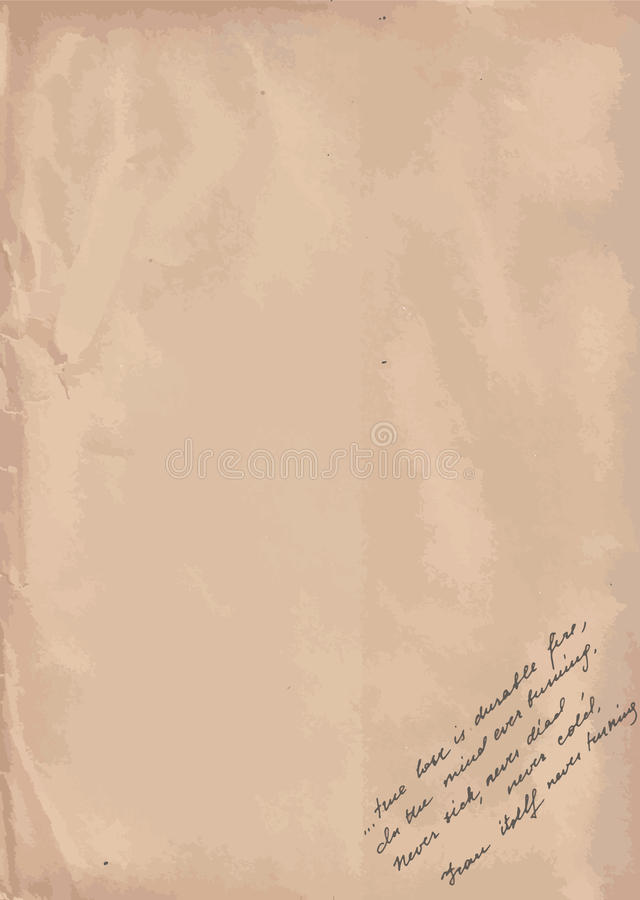 dreamstime
"...true love is durable fire,
In the mind ever burning.
Never sick, never died,
never cold,
From itself never turning